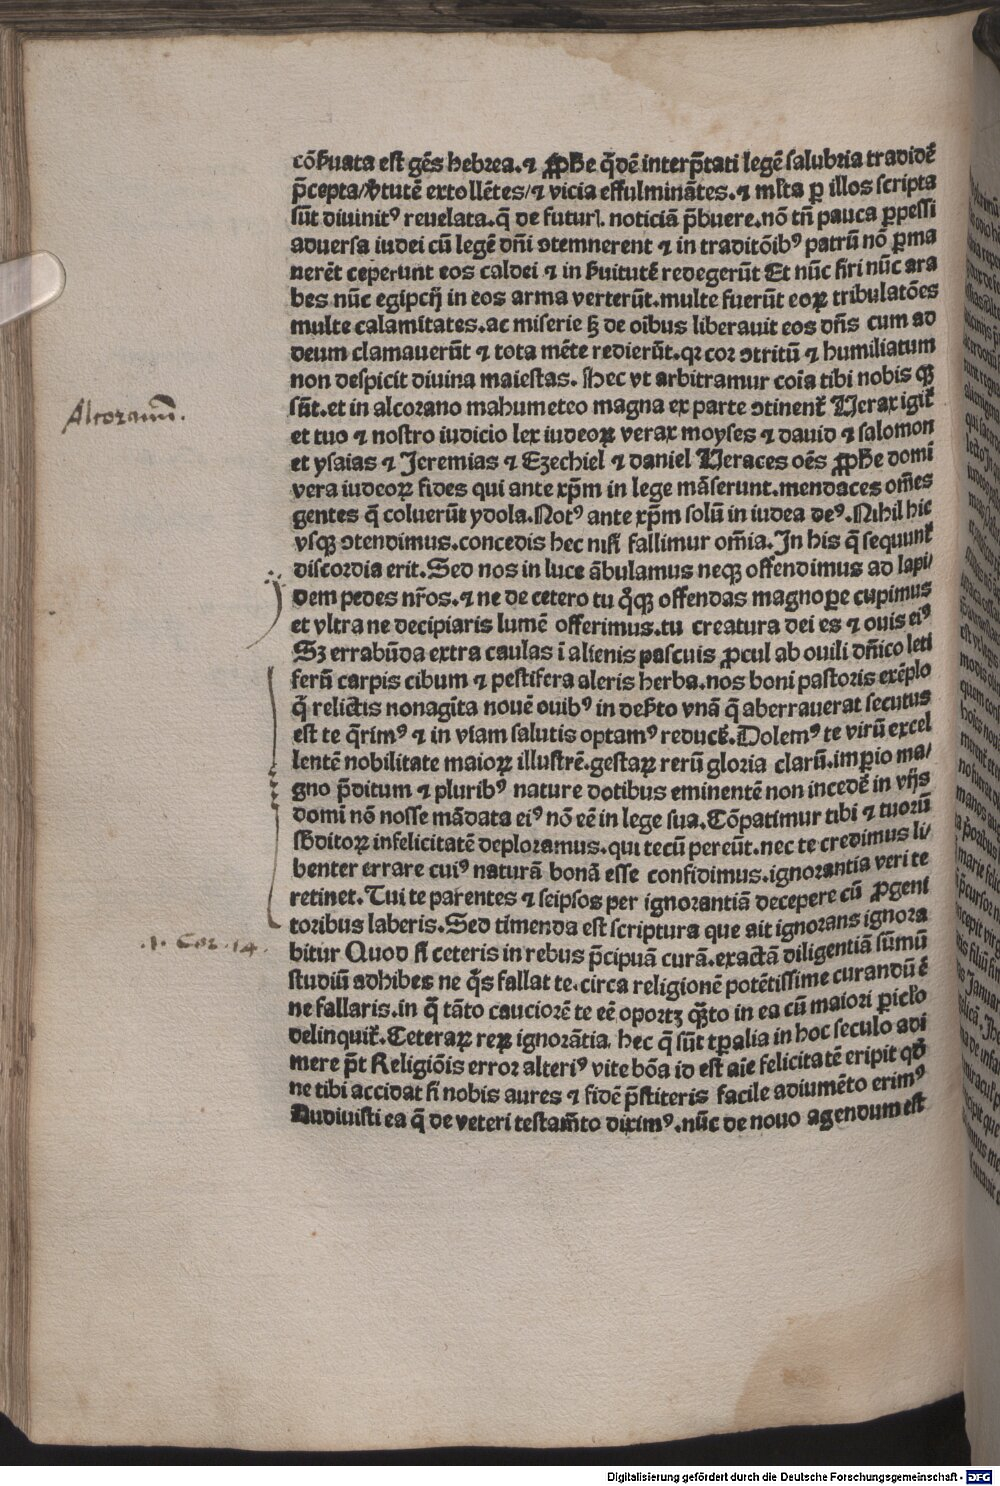 cōẜuata est gēs hebrea.⁊ ꝓphe q̄dē interp̄tati legē salubria tradidēt
p̄cepta/v̓tutē extollētes/⁊ vicia effulminātes.⁊ ml̓ta ꝑ illos scripta
sūt diuinitꝰ reuelata.q̄ de futurꝭ. noticiā p̄buere.nō tn̄ pauca ꝑpessi
aduersa iudei cū legē dn̄i ↄtemnerent ⁊ in traditōibꝰ patrū nō ꝑma
nerēt ceperunt eos caldei ⁊ in ẜuitutē redegerūt Et nūc siri nūc ara
bes nūc egipcij in eos arma verterūt.multe fuerūt eoꝝ tribulatōes
multe calamitates.ac miserie sꝫ de oībus liberauit eos dn̄s cum ad
deum clamauerūt ⁊ tota mēte redierūt.qꝛ cor ↄtritū ⁊ humiliatum
non despicit diuina maiestas. Hec vt arbitramur coīa tibi nobis qꝫ
sūt.et in alcorano mahumeteo magna ex parte ↄtinent᷑ Uerax igit᷑
et tuo ⁊ nostro iudicio lex iudeoꝝ verax moyses ⁊ dauid ⁊ salomon
et ysaias ⁊ Jeremias ⁊ Ezechiel ⁊ daniel Ueraces oēs ꝓphe domī
vera iudeoꝝ fides qui ante xp̄m in lege māserunt.mendaces om̄es
gentes q̄ coluerūt ydola.Notꝰ ante xp̄m solū in iudea deꝰ.Nihil hic
vsqꝫ ↄtendimus.concedis hec nisi fallimur om̄ia.In his q̄ sequunt᷑
discordia erit.Sed nos in luce ābulamus neqꝫ offendimus ad lapi/
dem pedes nr̄os.⁊ ne de cetero tu q̊qꝫ offendas magnope cupimus
et vltra ne decipiaris lumē offerimus.tu creatura dei es ⁊ ouis eiꝰ
Sꝫ errabūda extra caulas ī alienis pascuis ꝓcul ab ouili dn̄ico leti
ferū carpis cibum ⁊ pestifera aleris herba.nos boni pastoris exēplo
q̄ relictis nonagīta nouē ouibꝰ in desērto vnā q̄ aberrauerat secutus
est te q̄rimꝰ ⁊ in viam salutis optamꝰ reduce᷑.Dolemꝰ te virū excel
lentē nobilitate maioꝝ illustrē.gestaꝝ rerū gloria clarū.imꝑio ma/
gno p̄ditum ⁊ pluribꝰ nature dotibus eminentē non incedē in vijs
domī nō nosse mādata eiꝰ nō eē in lege sua.Cōpatimur tibi ⁊ tuorū
sb̄ditoꝝ infelicitatē deploramus.qui tecū pereūt.nec te credimus li/
benter errare cuiꝰ naturā bonā esse confidimus.ignorantia veri te
retinet.Tui te parentes ⁊ seipsos per ignorantiā decepere cū ꝓgeni
toribus laberis.Sed timenda est scriptura que ait ignorans ignora
bitur Quod si ceteris in rebus p̄cipuā curā.exactā diligentiā sūmū
studiū adhibes ne q̄s fallat te.circa religionē potētissime curandū ē
ne fallaris.in q̄ tāto cauciorē te eē oportꝫ qꝫto in ea cū maiori ꝑicl̓o
delinquit᷑.Ceteraꝝ reꝝ ignorātia. hec q̄ sūt tꝑalia in hoc seculo adi
mere p̄t Religiōis error alteriꝰ vite bōa id est aīe felicitatē eripit qd̓
ne tibi accidat si nobis aures ⁊ fidē p̄stiteris facile adiumēto erimꝰ
Audiuisti ea q̄ de veteri testam̄to diximꝰ.nūc de nouo agendum est
Alcoranum.
.1. Cor. 14.
Digitalisierung gefördert durch die Deutsche Forschungsgemeinschaft - DFG